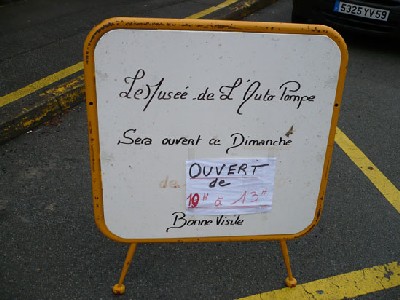 5325 YV 59
Le Musée de L'Auto Pompe
Sera ouvert ce Dimanche
de
OUVERT
de
19H à 13H
Bonne Visite